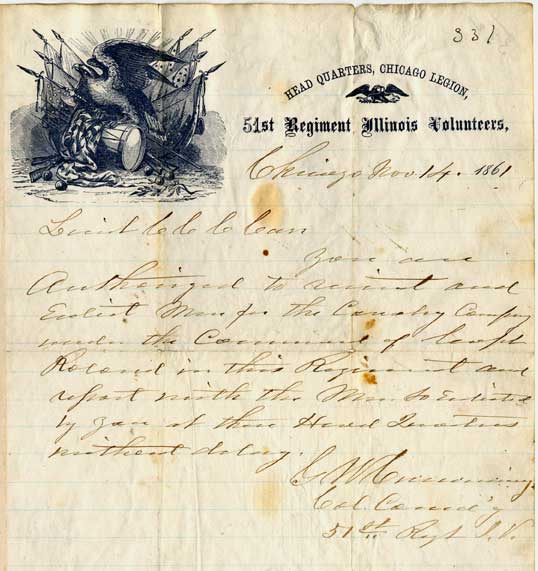 331
HEAD QUARTERS, CHICAGO LEGION,
51st Regiment Illinois Volunteers,
Chicago Nov. 14. 1861
Lieut C C C Carr
You are
Authorized to recruit and
Enlist Men for the Cavalry Company
under the Command of Capt
Roland in this Regiment and
report with the Men so Enlisted
by you at these Head Quarters
without delay.
G W Cumming
Col. Comd'g
51st Regt I. V.